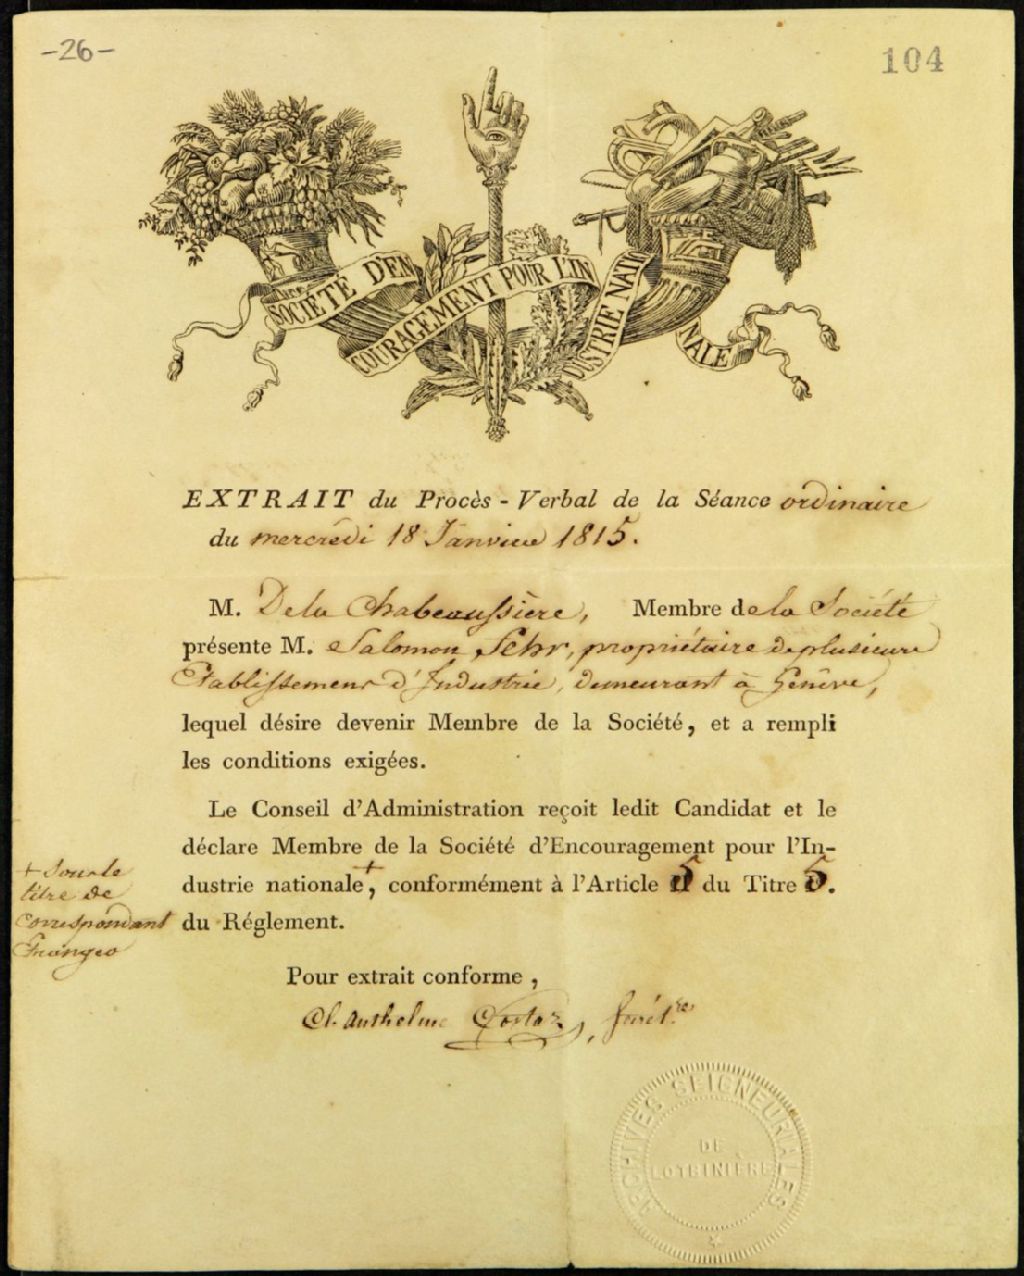 -26-
104
SOCIÉTÉ D'EN
COURAGEMENT POUR L'IN
DUSTRIE NATIO
NALE
EXTRAIT du Procès-Verbal de la Séance ordinaire
du mercredi 18 Janvier 1815.
M. De la Chabeaussière, Membre de la Société
présente M. Salomon Fehr, propriétaire de plusieurs
Etablissemens d'Industrie, demeurant à Genève,
lequel désire devenir Membre de la Société, et a rempli
les conditions exigées.
Le Conseil d'Administration reçoit ledit Candidat et le
déclare Membre de la Société d'Encouragement pour l'In-
dustrie nationale+, conformément à l'Article 5 du Titre 5.
du Réglement.
+ sous le
titre de
correspondant
Pour extrait conforme,
Cl. Anthelme Costaz, secrét.re
ARCHIVES SEIGNEURIALES
DE
LOTBINIÈRE